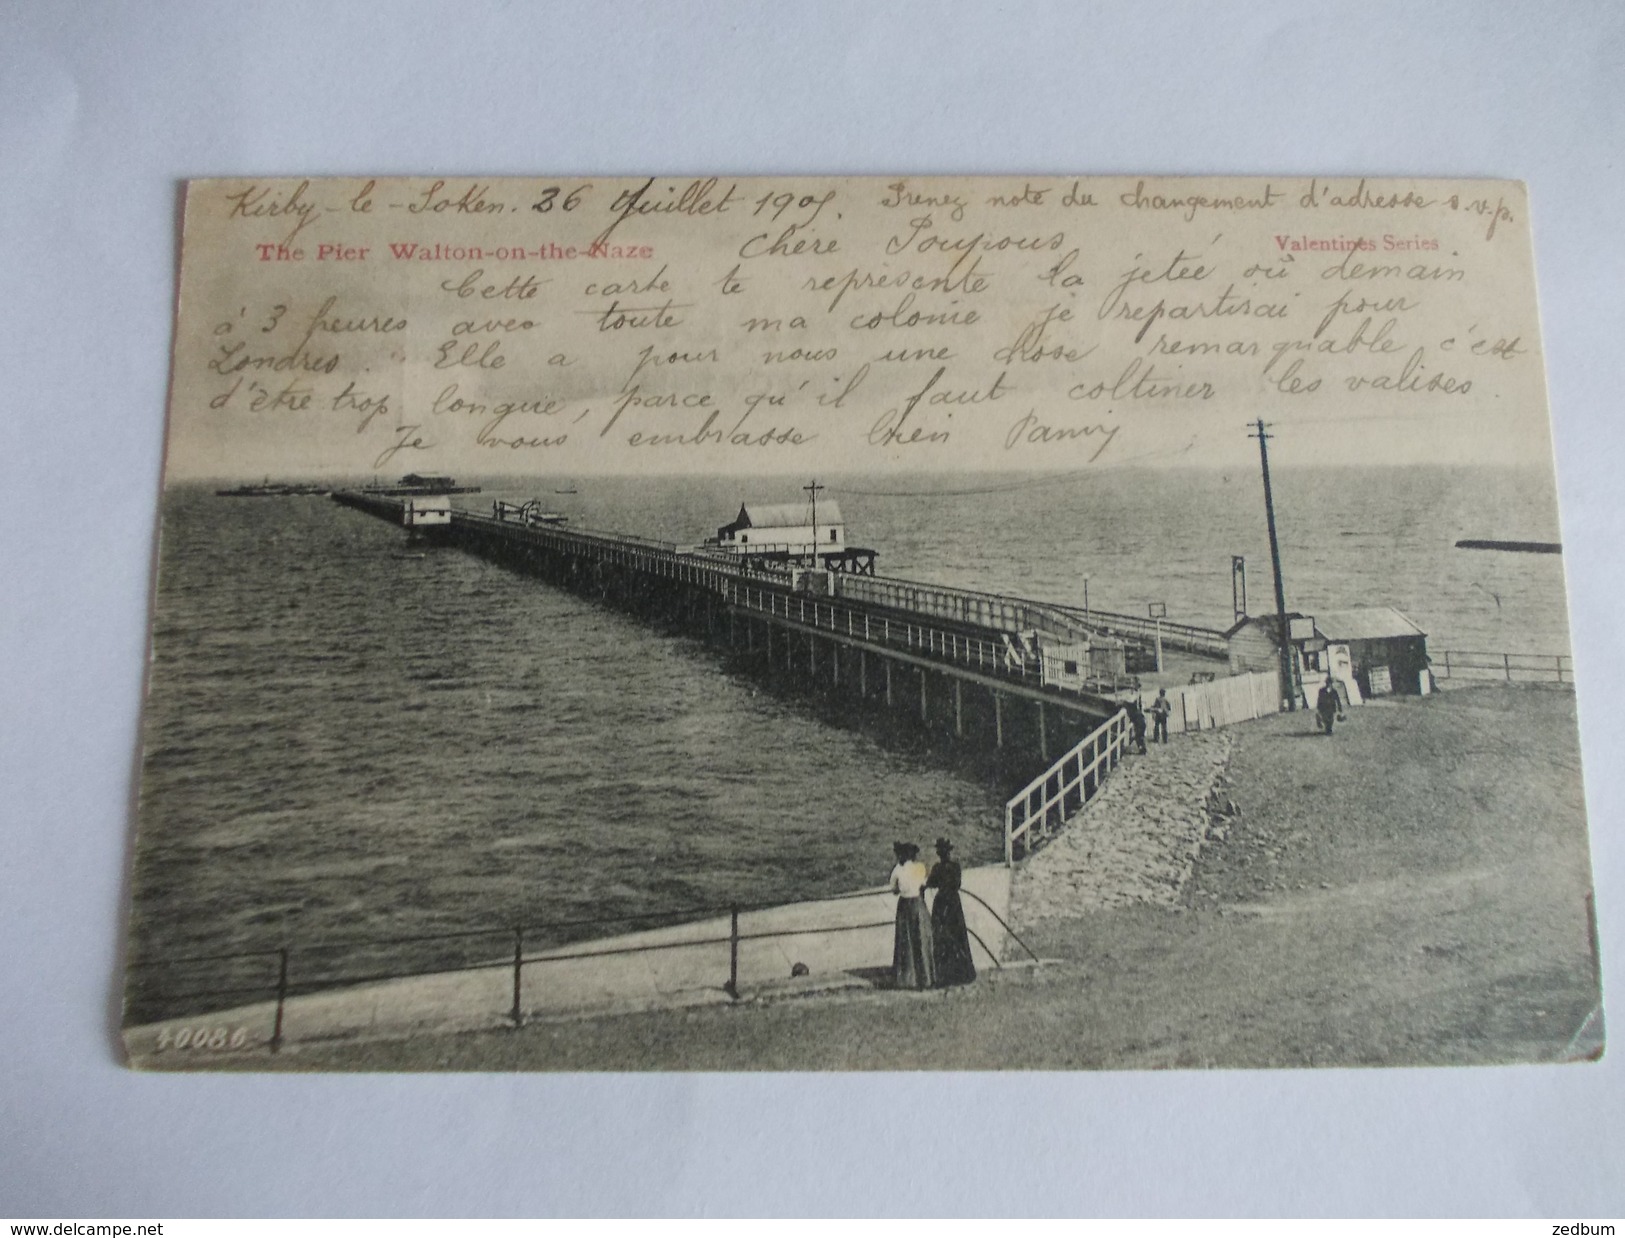 Kirby-le-Soken. 26 Juillet 1905. Prenez note du changement d'adresse s.v.p.
The Pier Walton-on-the-Naze Chère Poupous Valentines Series
Cette carte te représente la jetée où demain
à 3 heures avec toute ma colonie je repartirai pour
Londres. Elle a pour nous une chose remarquable c'est
d'être trop longue, parce qu'il faut coltiner les valises.
Je vous embrasse bien
40086
www.delcampe.net zedbum